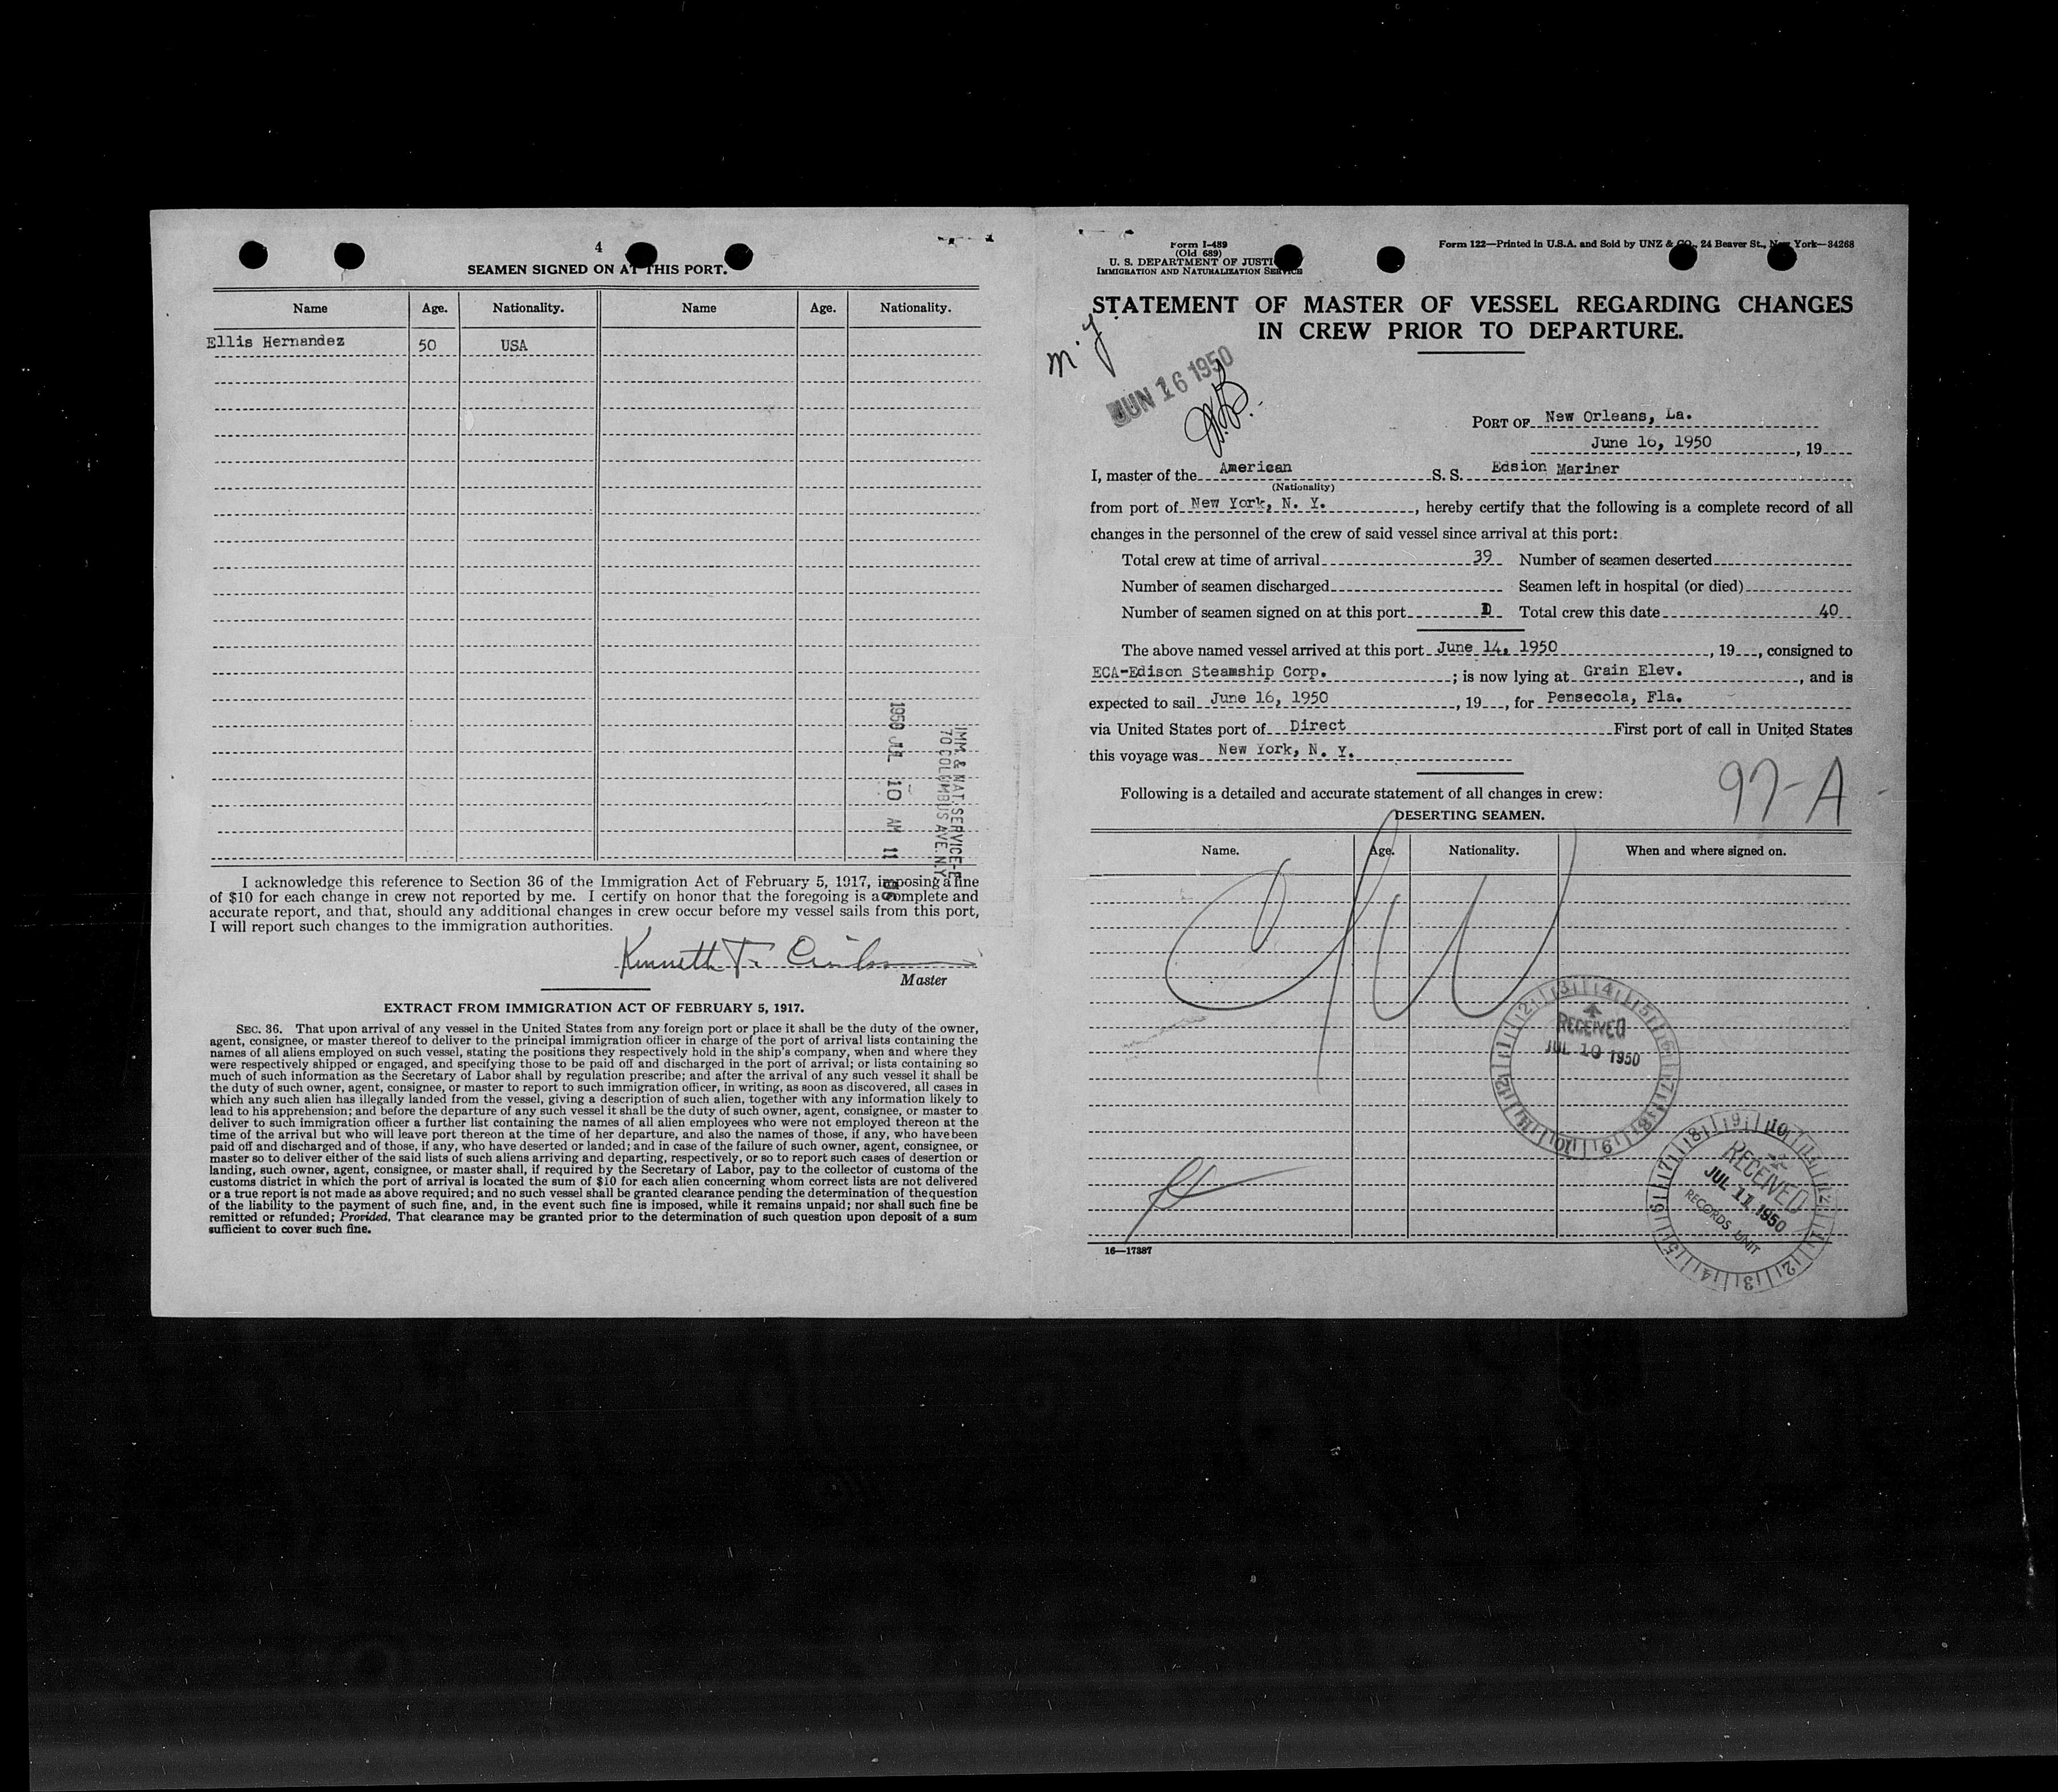 4
SEAMEN SIGNED ON AT THIS PORT.
Name Age. Nationality. Name Age. Nationality.
Ellis Hernandez 50 USA
IMM. & NAT. SERVICE
70 COLUMBUS AVE. N.Y.
1950 JUL 10 AM 11
I acknowledge this reference to Section 36 of the Immigration Act of February 5, 1917, imposing a fine
of $10 for each change in crew not reported by me. I certify on honor that the foregoing is a complete and
accurate report, and that, should any additional changes in crew occur before my vessel sails from this port,
I will report such changes to the immigration authorities.
Kenneth T.
Master
EXTRACT FROM IMMIGRATION ACT OF FEBRUARY 5, 1917.
SEC. 36. That upon arrival of any vessel in the United States from any foreign port or place it shall be the duty of the owner,
agent, consignee, or master thereof to deliver to the principal immigration officer in charge of the port of arrival lists containing the
names of all aliens employed on such vessel, stating the positions they respectively hold in the ship's company, when and where they
were respectively shipped or engaged, and specifying those to be paid off and discharged in the port of arrival; or lists containing so
much of such information as the Secretary of Labor shall by regulation prescribe; and after the arrival of any such vessel it shall be
the duty of such owner, agent, consignee, or master to report to such immigration officer, in writing, as soon as discovered, all cases in
which any such alien has illegally landed from the vessel, giving a description of such alien, together with any information likely to
lead to his apprehension; and before the departure of any such vessel it shall be the duty of such owner, agent, consignee, or master to
deliver to such immigration officer a further list containing the names of all alien employees who were not employed thereon at the
time of the arrival but who will leave port thereon at the time of her departure, and also the names of those, if any, who have been
paid off and discharged and of those, if any, who have deserted or landed; and in case of the failure of such owner, agent, consignee, or
master so to deliver either of the said lists of such aliens arriving and departing, respectively, or so to report such cases of desertion or
landing, such owner, agent, consignee, or master shall, if required by the Secretary of Labor, pay to the collector of customs of the
customs district in which the port of arrival is located the sum of $10 for each alien concerning whom correct lists are not delivered
or a true report is not made as above required; and no such vessel shall be granted clearance pending the determination of the question
of the liability to the payment of such fine, and, in the event such fine is imposed, while it remains unpaid; nor shall such fine be
remitted or refunded; Provided, That clearance may be granted prior to the determination of such question upon deposit of a sum
sufficient to cover such fine.
Form I-489
(Old 689)
U. S. DEPARTMENT OF JUSTICE
IMMIGRATION AND NATURALIZATION SERVICE
Form 122—Printed in U.S.A. and Sold by UNZ & CO., 24 Beaver St., New York—34268
STATEMENT OF MASTER OF VESSEL REGARDING CHANGES
IN CREW PRIOR TO DEPARTURE.
JUN 16 1950
PORT OF New Orleans, La.
June 16, 1950, 19
I, master of the American S. S. Edsion Mariner
(Nationality)
from port of New York, N. Y., hereby certify that the following is a complete record of all
changes in the personnel of the crew of said vessel since arrival at this port:
Total crew at time of arrival 39 Number of seamen deserted
Number of seamen discharged Seamen left in hospital (or died)
Number of seamen signed on at this port Total crew this date 40
The above named vessel arrived at this port June 14, 1950, 19, consigned to
ECA-Edison Steamship Corp.; is now lying at Grain Elev., and is
expected to sail June 16, 1950, 19, for Pensecola, Fla.
via United States port of Direct First port of call in United States
this voyage was New York, N. Y.
97-A
Following is a detailed and accurate statement of all changes in crew:
DESERTING SEAMEN.
Name. Age. Nationality. When and where signed on.
RECEIVED
JUL 10 1950
RECEIVED
JUL 11 1950
RECORDS UNIT
16—17387